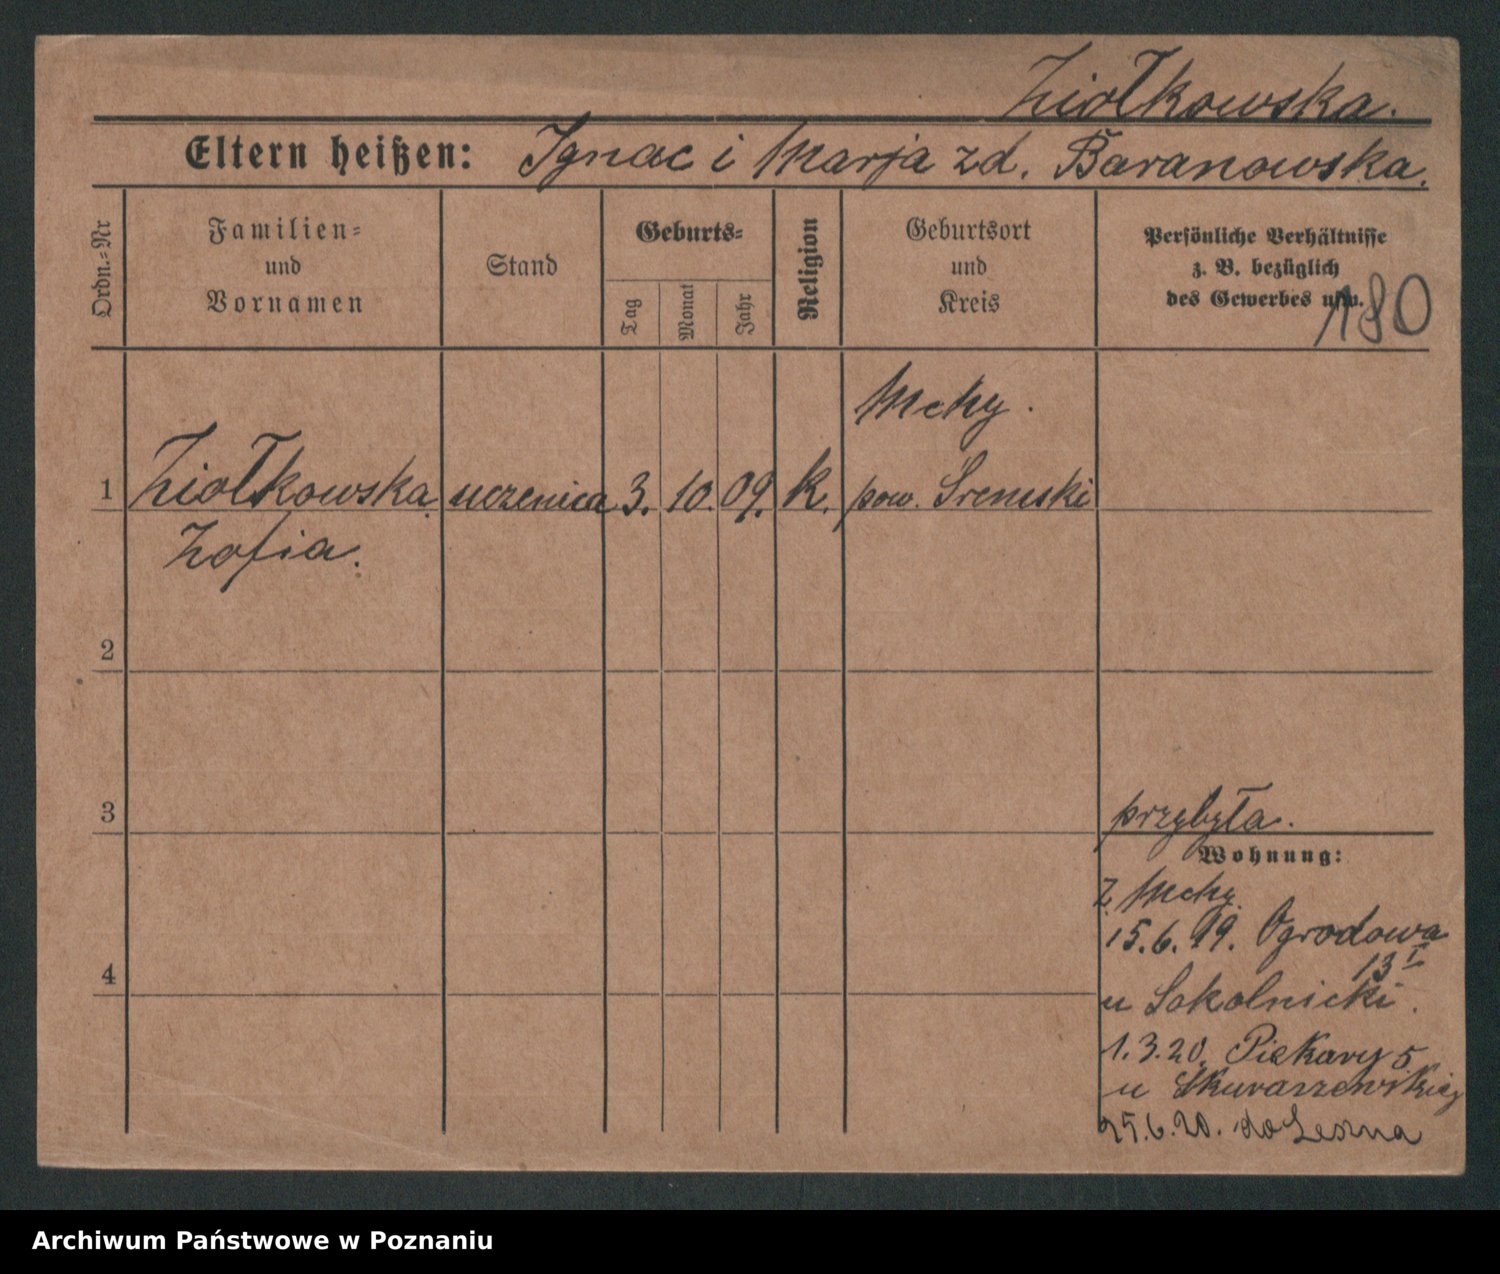 Ziołkowska.
Eltern heißen: Ignac i Marja zd. Baranowska.
Ordn.=Nr
Familien=
und
Vornamen
Stand
Geburts=
Tag
Monat
Jahr
Religion
Geburtsort
und
Kreis
Persönliche Verhältnisse
z. B. bezüglich
des Gewerbes usw.
180
Mchy.
1 Ziołkowska uczenica 3. 10. 09. k. pow. Śremski
Zofia.
2
3
przybyła.
Wohnung:
z Mchy.
15.6.19. Ogrodowa
13 I
u Sokolnicki.
4
1.3.20. Piekary 5
u Skuraszewskiej
25.6.20. do Leszna
Archiwum Państwowe w Poznaniu